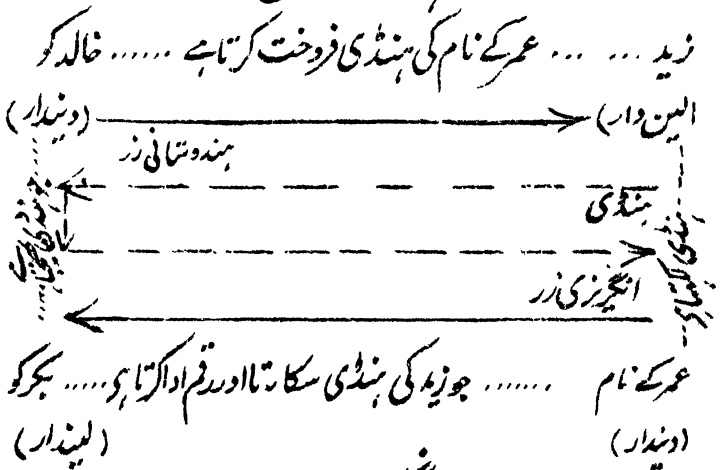 زید ... ... عمر کے نام کی ہنڈی فروخت کرتا ہے ...... خالد کو
(لین دار) (دیندار)
ہندوستانی زر
ہنڈی
ہنڈی لکھتا ہے
انگریزی زر
عمر کے نام ....... جو زید کی ہنڈی سکارتا اور رقم ادا کرتا ہے ..... بکر کو
(دیندار) (لیندار)